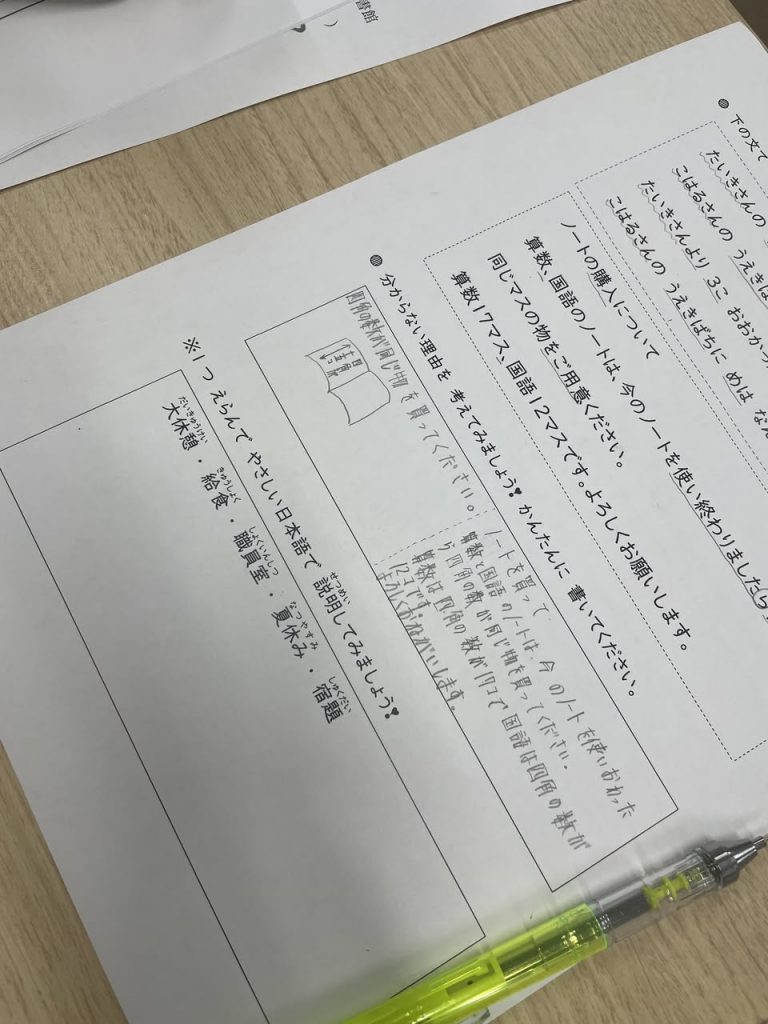 書館
下の文て
たいきさんの
こはるさんの うえきば
たいきさんより 3こ おおかっ
こはるさんの うえきばちに めは なん
ノートの購入について
算数、国語のノートは、今のノートを使い終わりましたら
同じマスの物をご用意ください。
算数17マス、国語12マスです。よろしくお願いします。
分からない理由を 考えてみましょう！ かんたんに 書いてください。
四角の数が同じ物を買ってください。
ノートを買って
算数と国語のノートは、今のノートを使いおわった
ら四角の数が同じ物を買ってください。
算数は四角の数が17コで国語は四角の数が
12コです。
よろしくおねがいします。
※1つ えらんで やさしい日本語で 説明してみましょう！
せつめい
だいきゅうけい きゅうしょく しょくいんしつ なつやすみ しゅくだい
大休憩・給食・職員室・夏休み・宿題